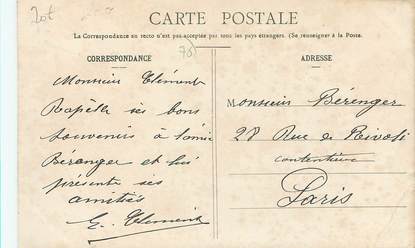 Tot
CARTE POSTALE
La Correspondance au recto n'est pas acceptée par tous les pays étrangers. (Se renseigner à la Poste.
78
CORRESPONDANCE
Monsieur Clément
Rapelle ses bons
souvenirs à l'ami
Béranger et lui
présente ses
amitiés
E. Clement
ADRESSE
Monsieur Bérenger
28 Rue de Rivoli
Paris